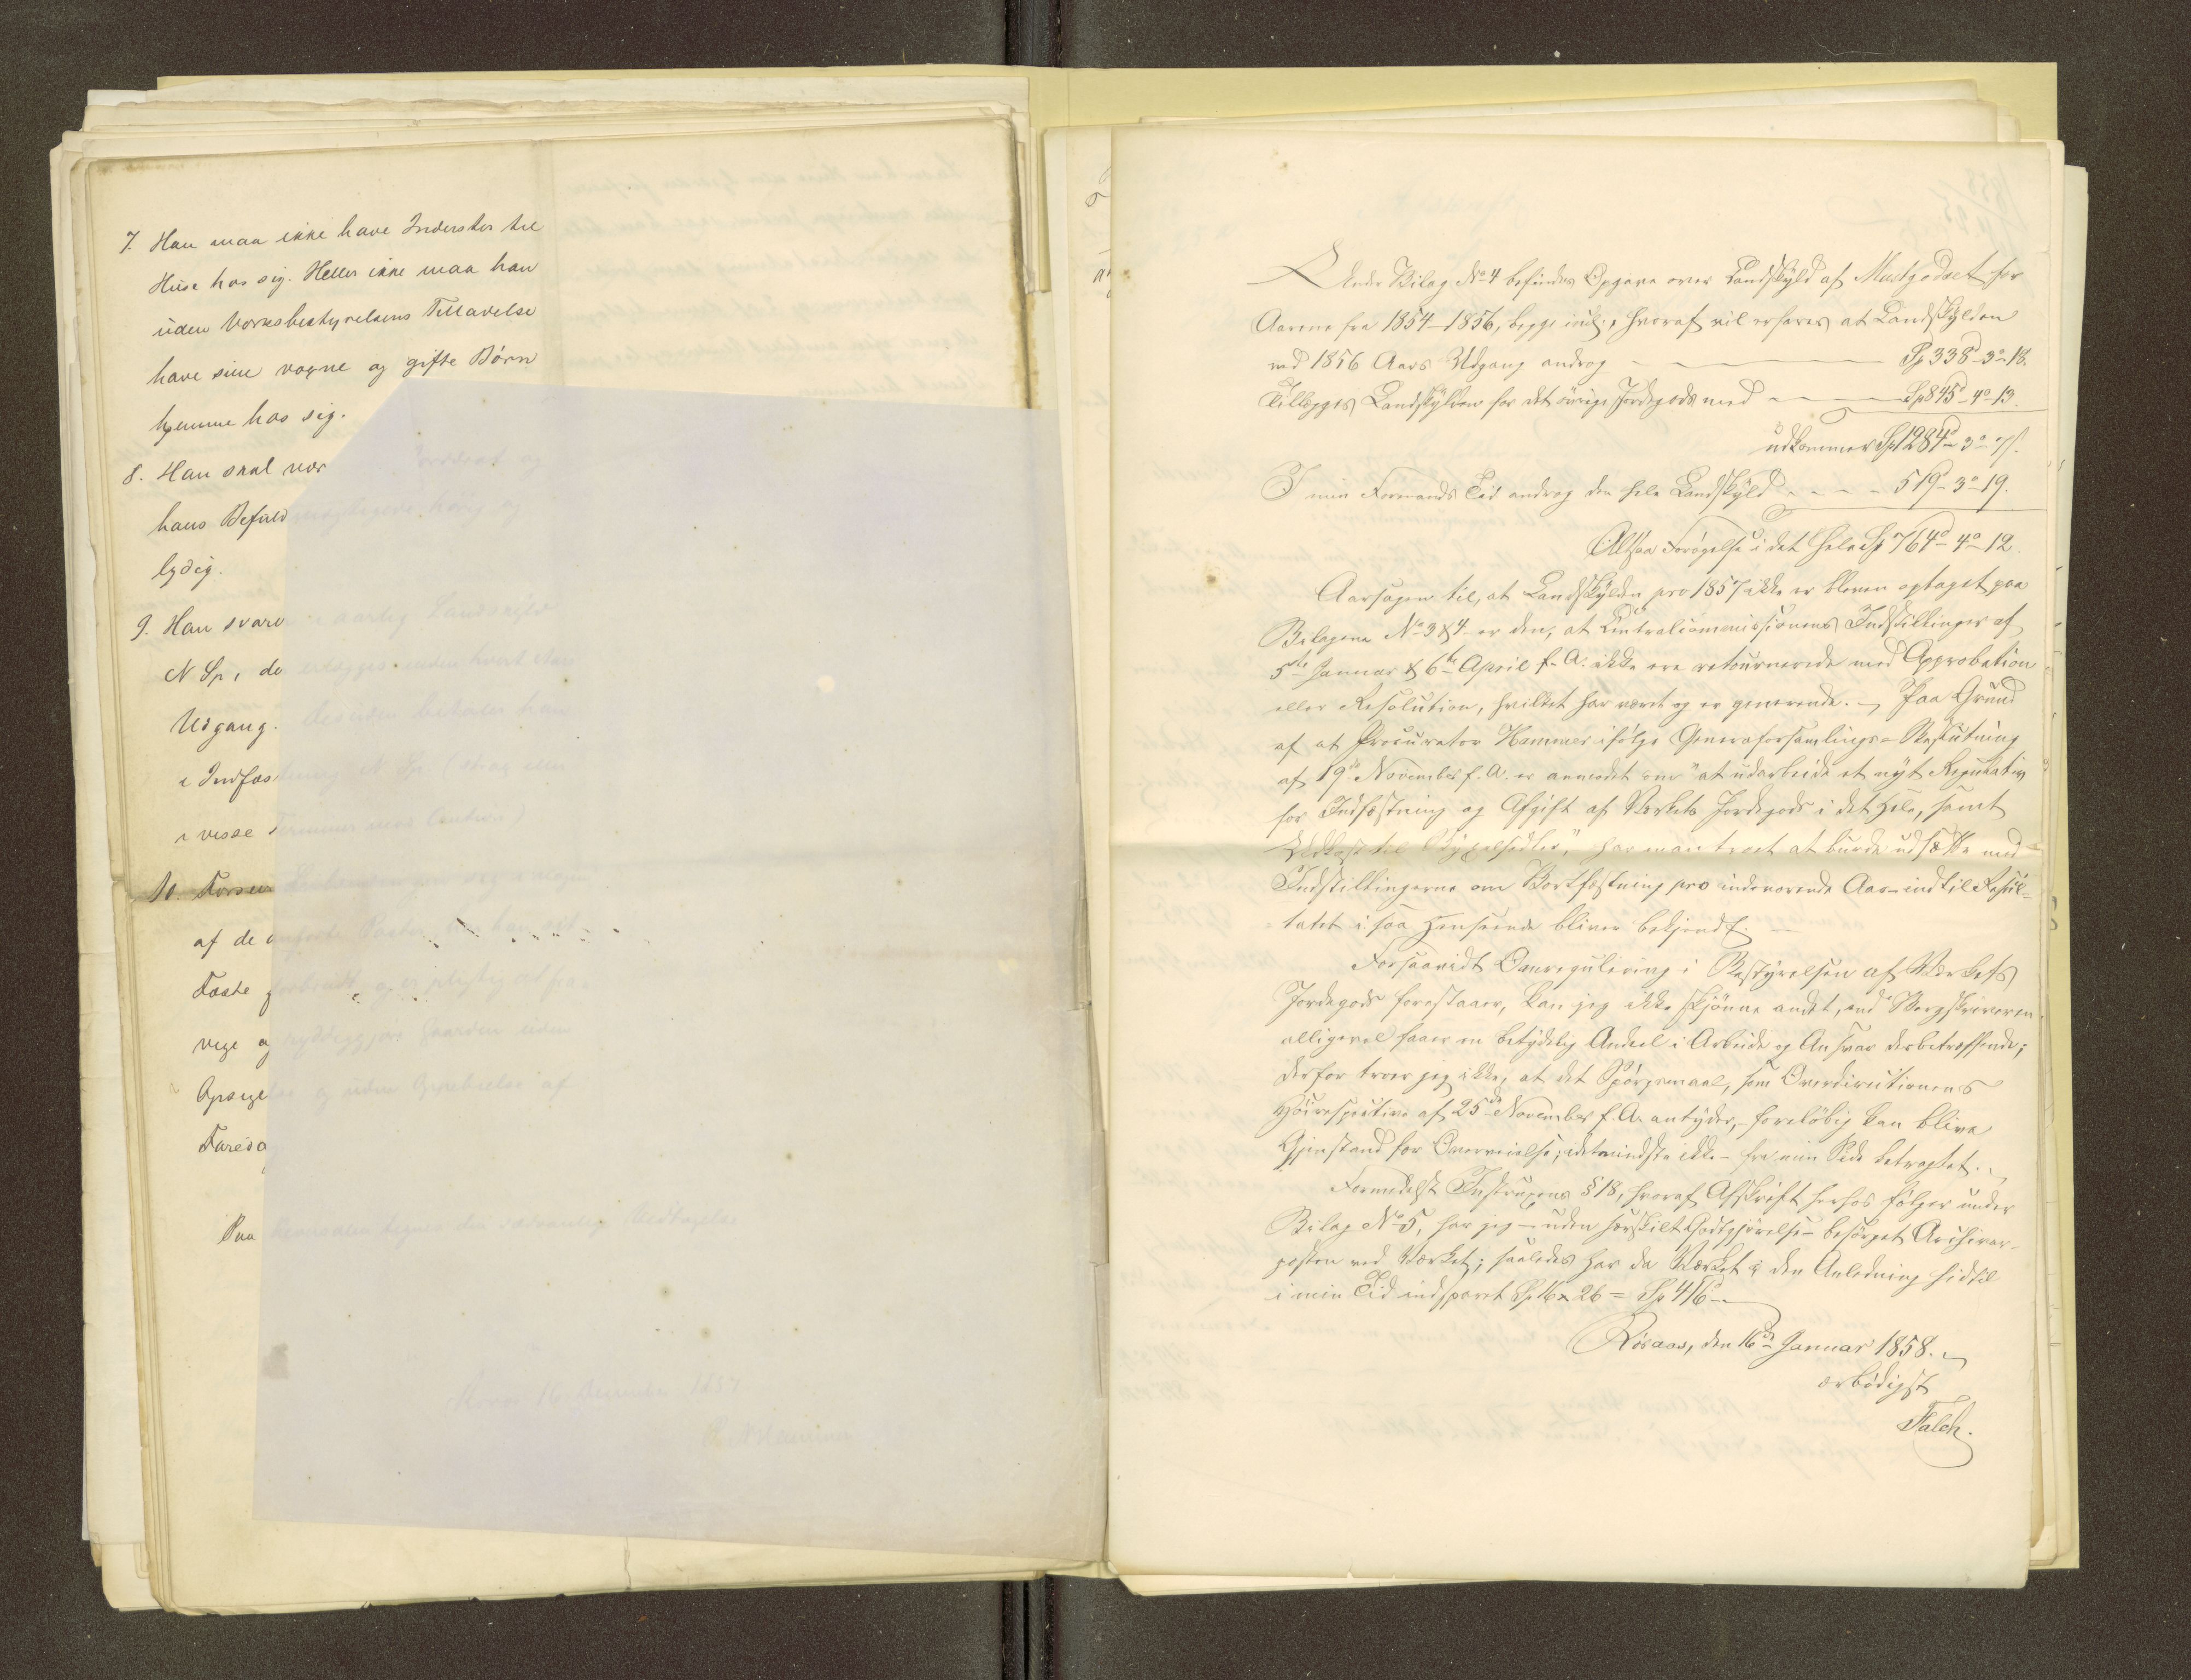 7. Han maa ikke have Inderster til
Huse hos sig. Heller ikke maa han
uden Værksbestyrelsens Tilladelse
have sine voxne og gifte Børn
hjemme hos sig.
8. Han skal vær
hans Befuld
lydig.
9. Han svare i aarlig Landskyld
N Sp, de erlægges inden hvert Aars
Udgang. desuden betaler han
i Indfæstning N Sp. (strax eller
i visse Terminer mod Caution)
10. Forseer
af de anførte Poster, har han sit
Fæste forbrudt og er pligtig at fra
vige og ryddiggjøre Gaarden uden
Opsigelse og uden Oppebielse af
Fareda
Paa
Moss 16 December 1857
Hammer
Under Bilag No 4 befindes Opgave over Landskyld af Mustgodset for
Aarene fra 1854-1856, begge incl., hvoraf vil erfares at Landskylden
ved 1856 Aars Udgang androg — Sp 338d-3o-18.
Tillægges Landskylden for det øvrige Jordegods med — Sp 845d-4o-13.
udkommer Sp 1284d-3o-7s.
I min Formands Tid androg den hele Landskyld - - - - 519-3o-19.
Altsaa Forøgelse i det Hele Sp 764d-4o-12.
Aarsagen til, at Landskylden pro 1857 ikke er bleven optaget paa
Bilagene No 3 & 4 er den, at Centralcommissionens Indstillinger af
5te Januar & 6te April f. A. ikke ere retournerede med Approbation
eller Resolution, hvilket har været og er generende. — Paa Grund
af at Procurator Hammer ifølge Generalforsamlings-Beslutning
af 19de November f. A. er anmodet om "at udarbeide et nyt Regulativ
for Indfæstning og Afgift af Værkets Jordegods i det Hele, samt
Udkast til Bygselsedler," har man troet at burde udsætte med
Indstillingerne om Bortfæstning pro indeværende Aar indtil Resul-
tatet i saa Henseende bliver bekjendt. —
Forsaavidt Omregulering i Bestyrelsen af Værkets
Jordegods forestaaer, kan jeg ikke skjønne andet, end Bergskriveren
alligevel faaer en betydelig Andeel i Arbeide og Ansvar derbetræffende;
derfor troer jeg ikke, at det Spørgsmaal, som Overdirectionens
Høirespective af 25de November f. A. antyder, foreløbig kan blive
Gjenstand for Overveielse, idetmindste ikke - fra min Side betragtet.
Formedelst Instruxens § 18, hvoraf Afskrift herhos følger under
Bilag No 5, har jeg - uden særskilt Godtgjørelse - besørget Archivar-
posten ved Værket; saaledes har da Værket i den Anledning hidtil
i min Tid indsparet Sp 16 x 26 = Sp 416 —
Røraas, den 16de Januar 1858.
ærbødigst
Falch.